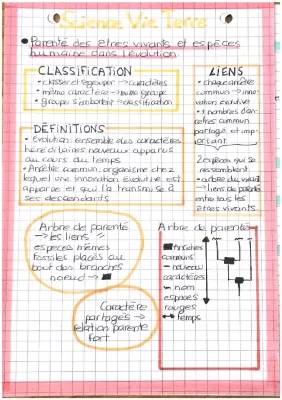 Science Vie Terre
• Parenté des êtres vivants et espèces
humaine dans l'évolution
CLASSIFICATION
• classer et regrouper → caractères
• même caractère → même groupe
• groupe s'emboîtent → classification
LIENS
• chaque ancêtre
commun → inno-
vation évolutive
• nombres d'an-
cêtres commun
partagé est imp-
ortant
2 espèces qui se
ressemblent
• arbre du vivant
→ liens de parenté
entre tous les
êtres vivants
DÉFINITIONS
• Evolution: ensemble des caractères
héréditaires nouveaux apparus
au cours du temps
• Ancêtre commun: organisme chez
lequel une innovation évolutive est
apparue et qui l'a transmise à
ses descendants
Arbre de parenté
→ les liens =
espèces mêmes
fossiles placés au
bout des branches
noeud →
Caractère
partagés →
relation parenté
fort
Arbre de parenté
Ancêtres
communs
– nouveau
caractères
~ nom
espèces
rouges
↔ temps